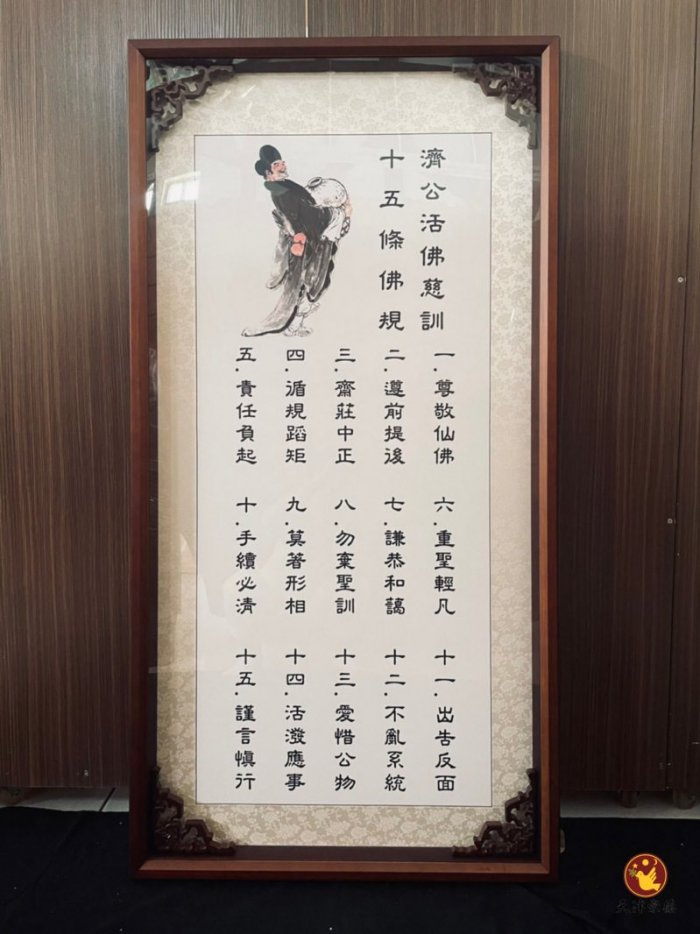 濟公活佛慈訓
十五條佛規
一．尊敬仙佛
二．遵前提後
三．齋莊中正
四．循規蹈矩
五．責任負起
六．重聖輕凡
七．謙恭和藹
八．勿棄聖訓
九．莫著形相
十．手續必清
十一．出告反面
十二．不亂系統
十三．愛惜公物
十四．活潑應事
十五．謹言慎行